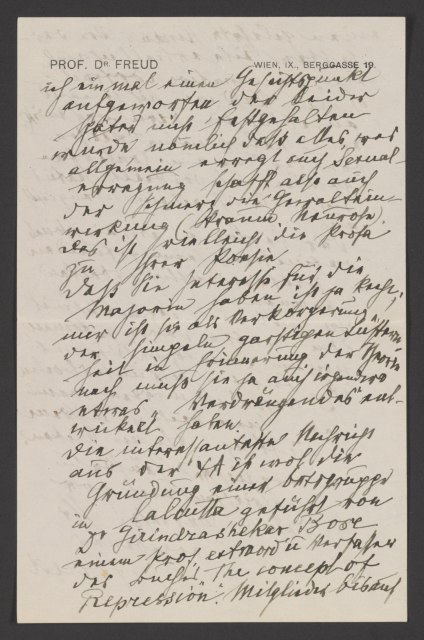 PROF. DR. FREUD
WIEN, IX., BERGGASSE 19.
ich einmal einen Gesichtspunkt
aufgeworfen der leider
später nicht festgehalten
wurde nämlich daß alles, was
allgemein erregt auch Sexual-
erregung schafft also auch
der Schmerz, die Gewaltein-
wirkung (Traum. Neurose)
das ist vielleicht die Prosa
zu Ihrer Poesie
daß Sie Interesse für die
Majorin haben ist ja recht,
mir ist sie als Verkörperung
der simpeln garstigen Lüstern-
heit in Erinnerung der Theorie
nach muß sie ja auch irgendwo
etwas „Verdrängendes" ent-
wickelt haben
Die interessanteste Nachricht
aus der ΨA ist wol die
Gründung einer Ortsgruppe
in Calcutta geführt von
Dr Girindrashekar Bose
einem Prof. extraord u Verfasser
des Buches "The concept of
Repression". Mitglieder